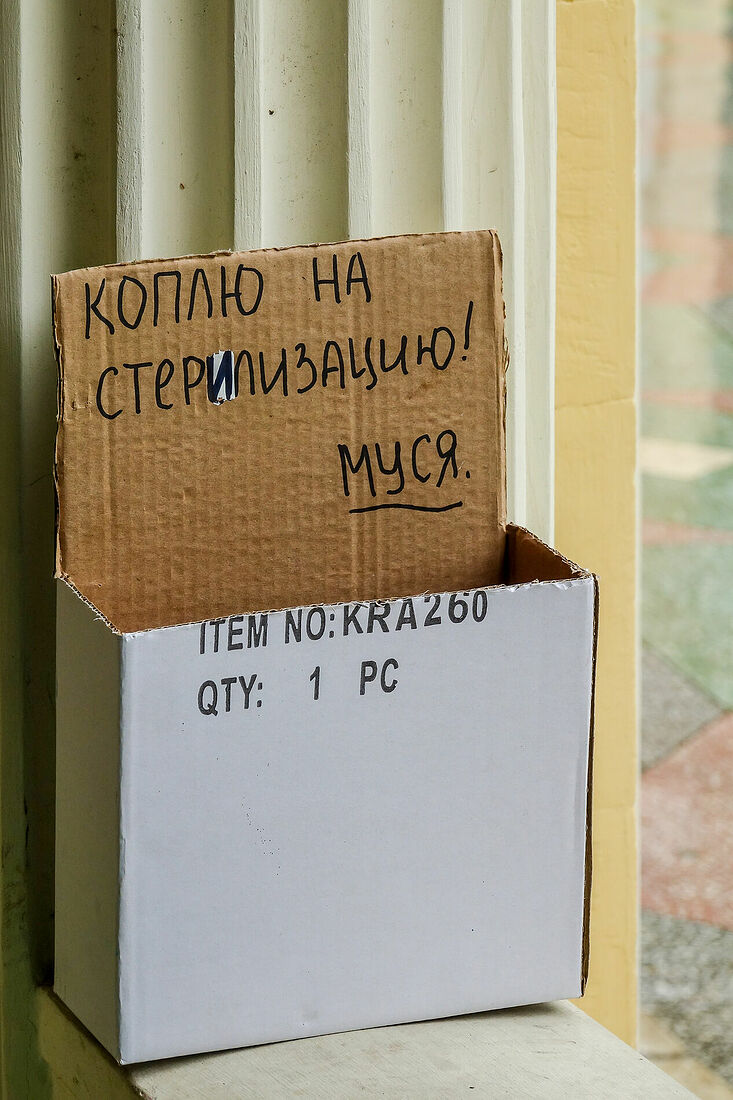 КОПЛЮ НА
СТЕРИЛИЗАЦИЮ!
МУСЯ.
ITEM NO: KRA260
QTY: 1 PC